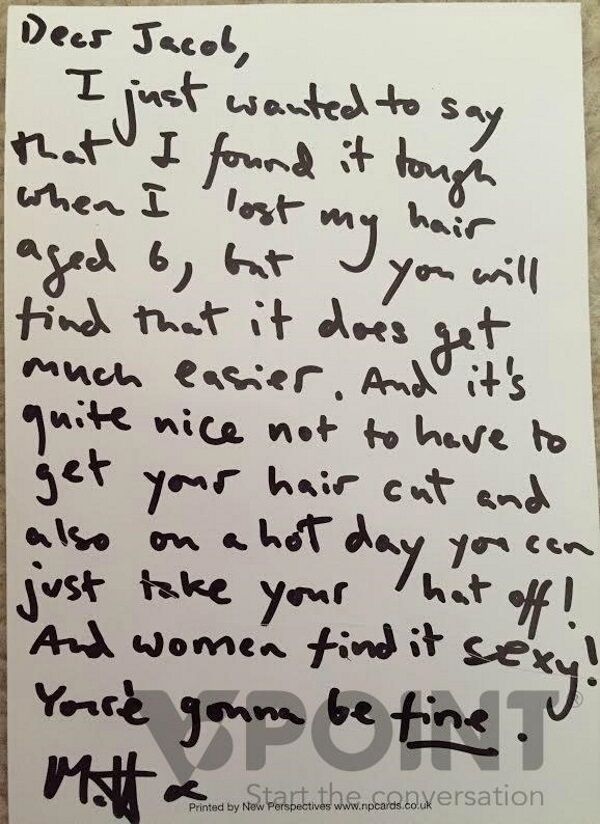 Dear Jacob,
I just wanted to say
that I found it tough
when I lost my hair
aged 6, but you will
find that it does get
much easier. And it's
quite nice not to have to
get your hair cut and
also on a hot day you can
just take your hat off!
And women find it sexy!
You're gonna be fine.
VPOINT®
Matt x
Start the conversation
Printed by New Perspectives www.npcards.co.uk